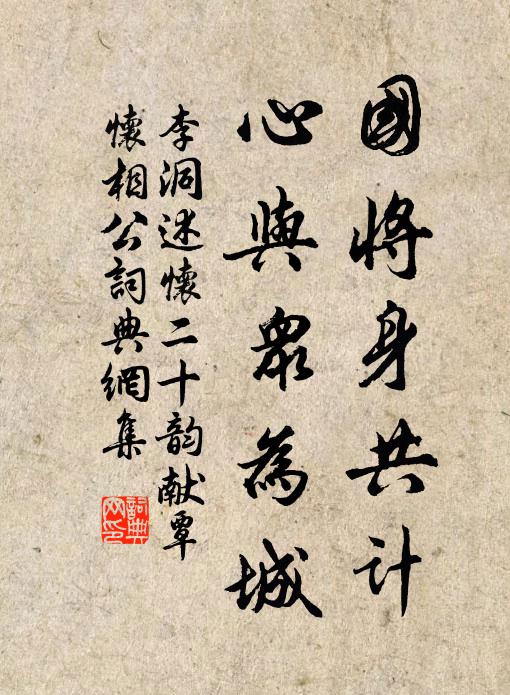 國將身共計
心與眾為城
李洞述懷二十韵献覃
懷相公詞典網集
詞典
网印